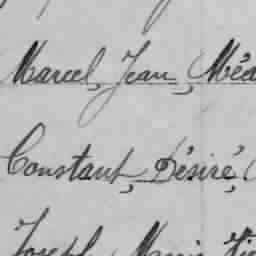 Marcel, Jean, Méd
Constant, Désiré,
Joseph Marie